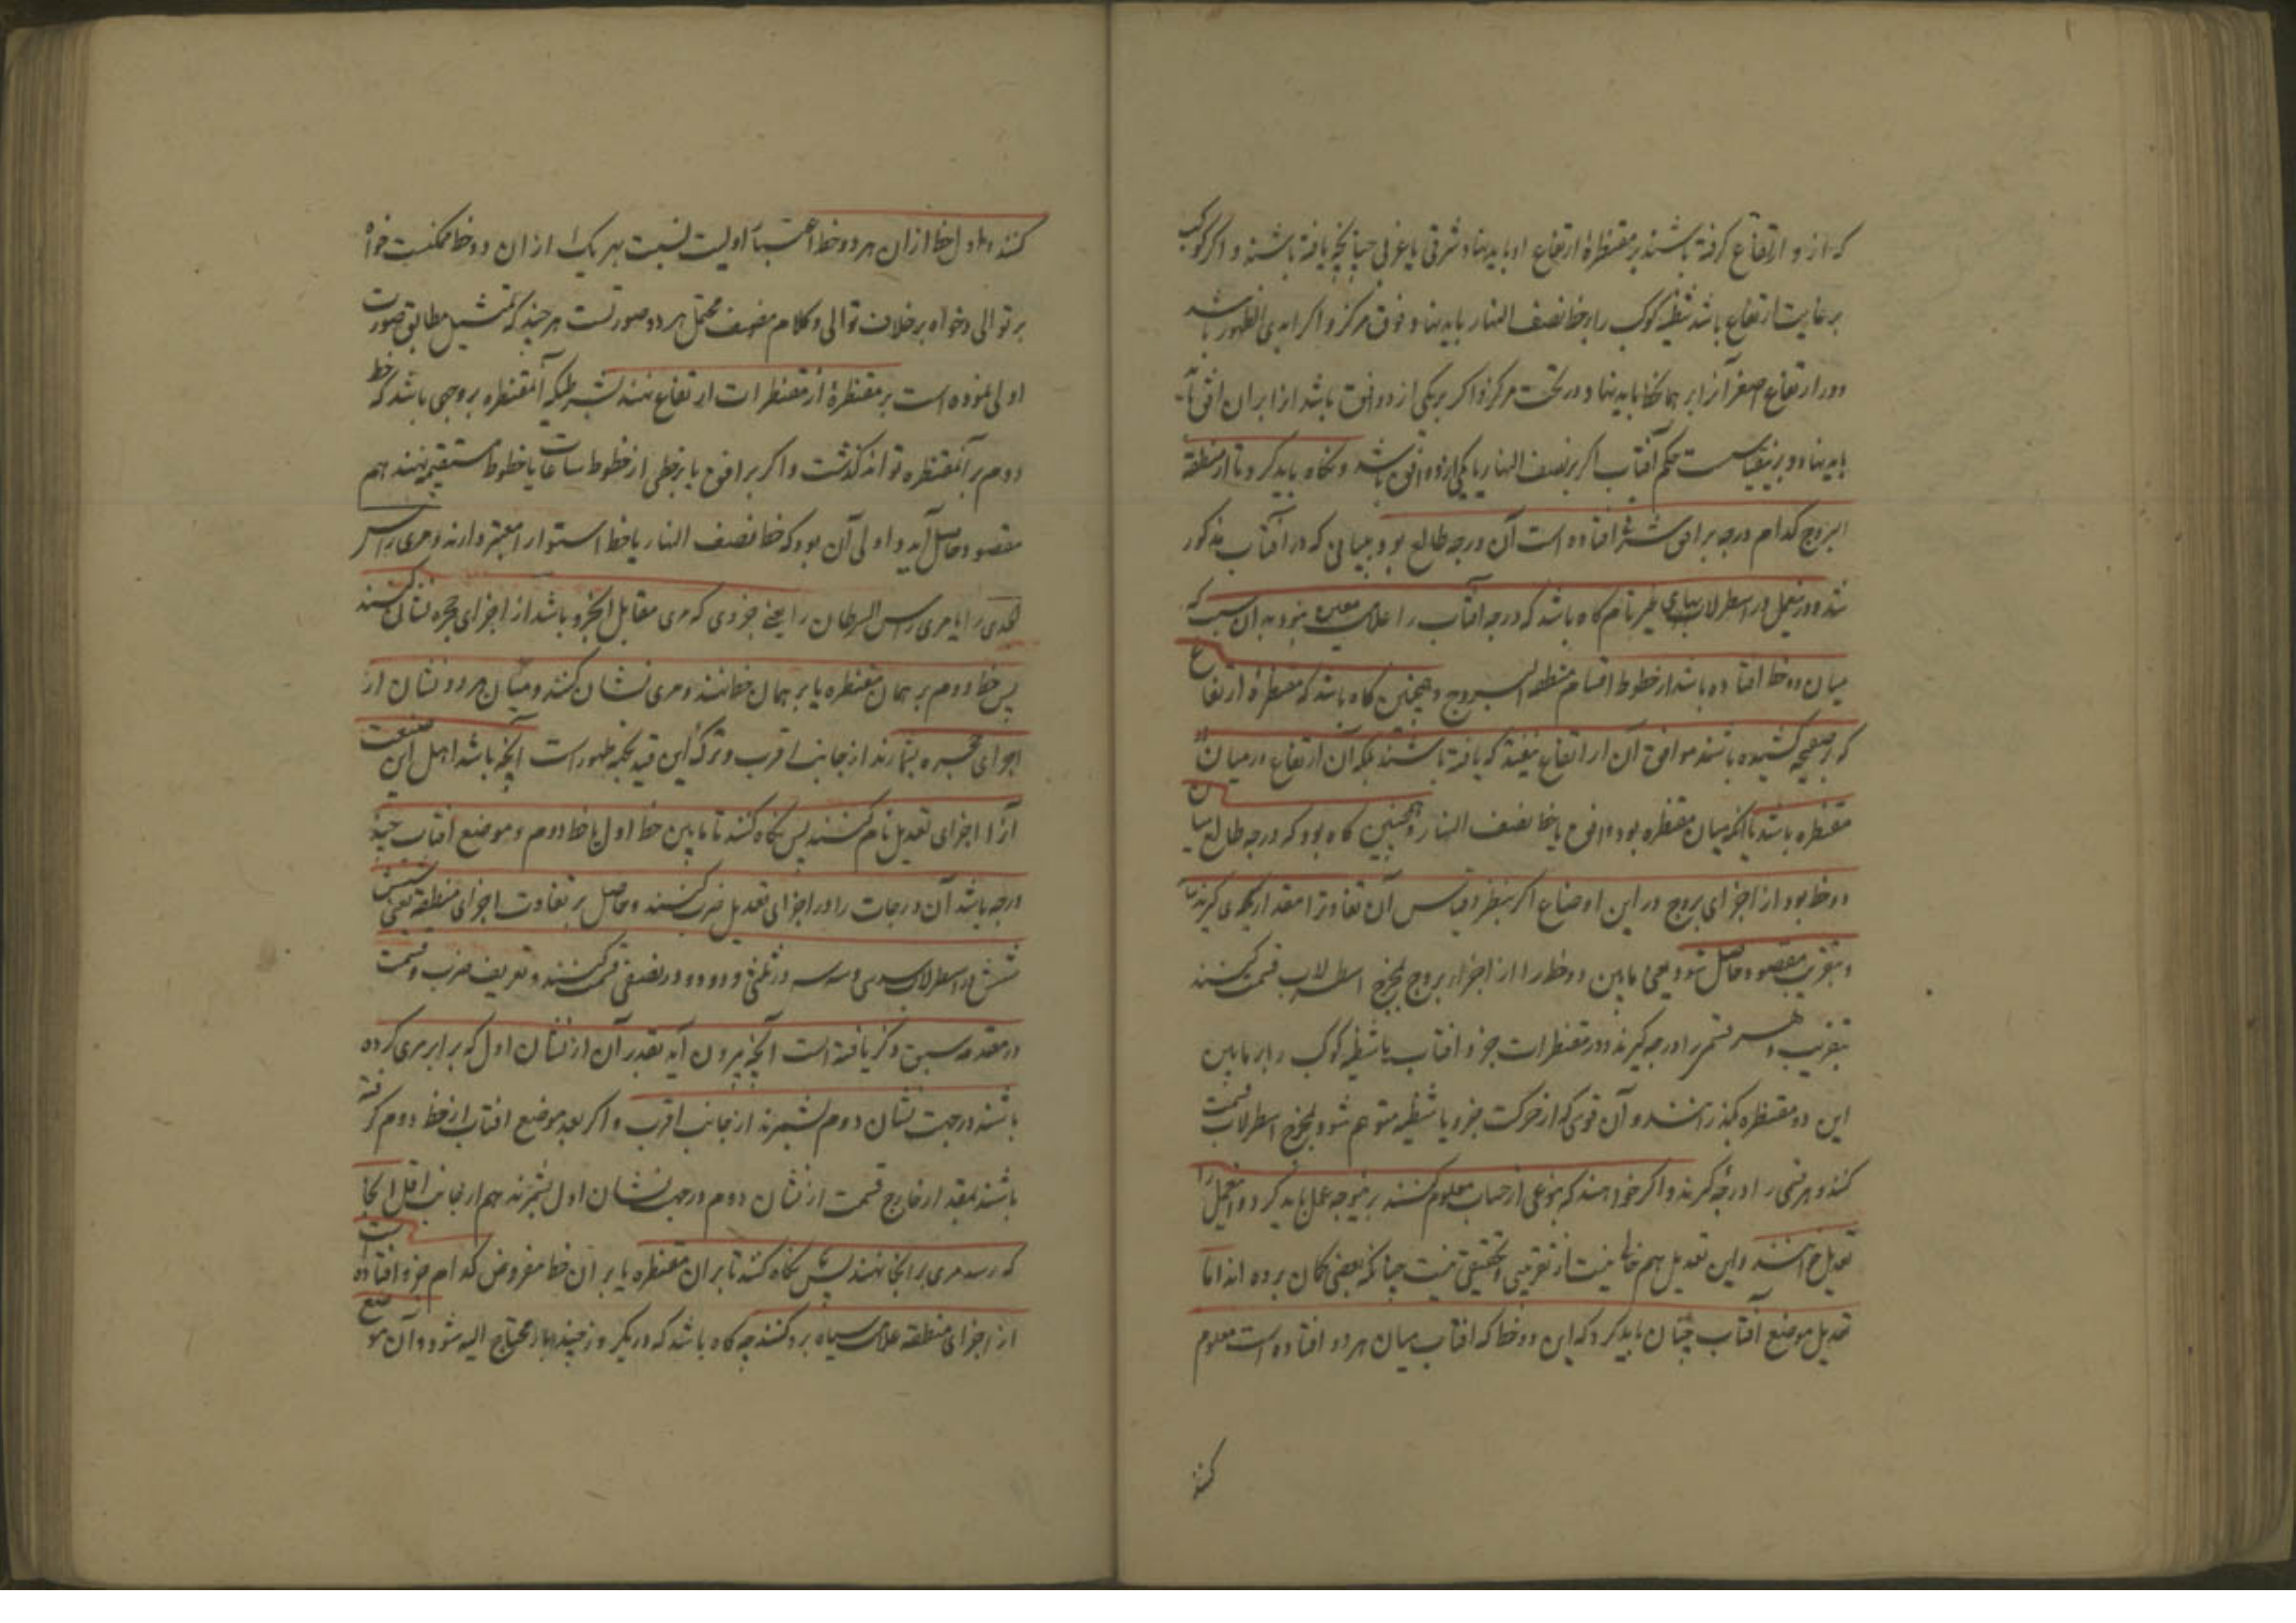 که از و ارتفاع گرفته باشند بر مقنطرهٔ ارتفاع او باید نهاد شرقی یا غربی چنانچه یافته باشند و اگر کوکب
بر غایت ارتفاع باشد شظیه کوکب را بر خط نصف النهار باید نهاد فوق مرکز و اگر ابدی الظهور باشد
و در ارتفاع اصغر آنرا بر همان خط باید نهاد در تحت مرکز و اگر بر یکی از دو افق باشد انرا بران افق
باید نهاد و برینقیاست حکم آفتاب اگر بر نصف النهار یا یکی از دو افق باشد و نگاه باید کرد تا از منطقه
البروج کدام درجه بر افق شرقی افتاده است آن درجه طالع بود و بیانی که در آفتاب مذکور
شد و درینعمل در اسطرلابهای غیر تام گاه باشد که درجه افتاب را علامت معین نبود به آن سبب که
میان دو خط افتاده باشد از خطوط اقسام منطقة البروج و همچنین گاه باشد که مقنطرهٔ ارتفاع
که بر صفیحه کشیده باشند موافق آن ارتفاع نیفتد که یافته باشند بلکه آن ارتفاع در میان دو
مقنطره باشد یا آنکه میان مقنطره بود و افق یا خط نصف النهار و همچنین گاه بود که درجه طالع میان
دو خط بود از اجزای بروج در این اوضاع اگر بنظر و قیاس آن تفاوترا مقدار بگیری گیرند
و بتقریب مقصود حاصل شود یعنی مابین دو خط را از اجزاء بروج بمخرج اسطرلاب قسمت کنند
بتقریب و هر قسمی را درجه گیرند و در مقنطرات جزو افتاب یا شظیه کوکب را بر مابین
این دو مقنطره بگذرانند و آن قوسی که از حرکت جزو یا شظیه متوهم شود بمخرج اسطرلاب قسمت
کنند و هر قسمی را درجه گیرند و اگر خواهند که بنوعی از حساب معلوم کنند برینوجه عمل باید کرد و اینعمل را
تعدیل خوانند و این تعدیل هم خالی نیست از تقریبی و تحقیقی نیست چنانکه بعضی گمان برده اند اما
تعدیل موضع آفتاب چنان باید کرد که این دو خط که افتاب میان هر دو افتاده است معلوم
کنند
کنند و اول خط از ان هر دو خط اعتبار اولیت نسبت بهر یک از ان دو خط ممکنست خواه
بر توالی و خواه بر خلاف توالی و کلام مصنف محتمل هر دو صورتست هر چند که تمثیل مطابق صورت
اولی نموده است بر مقنطرهٔ از مقنطرات ارتفاع نهند بشرطیکه آنمقنطره بر وجهی باشد که خط
دوم بر آنمقنطره تواند گذشت و اگر بر افق یا بر خطی از خطوط ساعات یا خطوط مستقیم نهند هم
مقصود حاصل آید و اولی آن بود که خط نصف النهار یا خط استوا را معتبر دارند و مری راس
الجدی را یا مری راس السرطان را یعنی جزوی که مری مقابل انجزو باشد از اجزای حجره نشان کنند
پس خط دوم بر همان مقنطره یا بر همان خط نهند و مری نشان کنند و میان هر دو نشان از
اجزای حجره بشمارند از جانب اقرب و ترک این قید بجهة ظهور است آنچه باشد اهل این صنعت
آنرا اجزای تعدیل نام کنند پس نگاه کنند تا مابین خط اول یا خط دوم و موضع افتاب چند
درجه باشد آن درجات را در اجزای تعدیل ضرب کنند و حاصل بر تفاوت اجزای منطقه یعنی شش
شش در اسطرلاب سدسی و سه سه در ثلثی و دو دو در نصفی قسمت کنند و تعریف ضرب و قسمت
در مقدمه سبق ذکر یافته است آنچه بیرون آید بقدر آن از نشان اول که برابر مری کرده
باشند در جهت نشان دوم بشمرند از جانب اقرب و اگر بعد موضع افتاب از خط دوم گرفته
باشند بقدر خارج قسمت از نشان دوم در جهت نشان اول بشمرند هم از جانب اقل انجا
که رسد مری بر انجا نهند پس نگاه کنند تا بران مقنطره یا بر ان خط مفروض کدام جزو افتاده است
از اجزای منطقه علامت سیاه برو کنند چه گاه باشد که در یکروز چند بار محتاج الیه شود و آن موضع